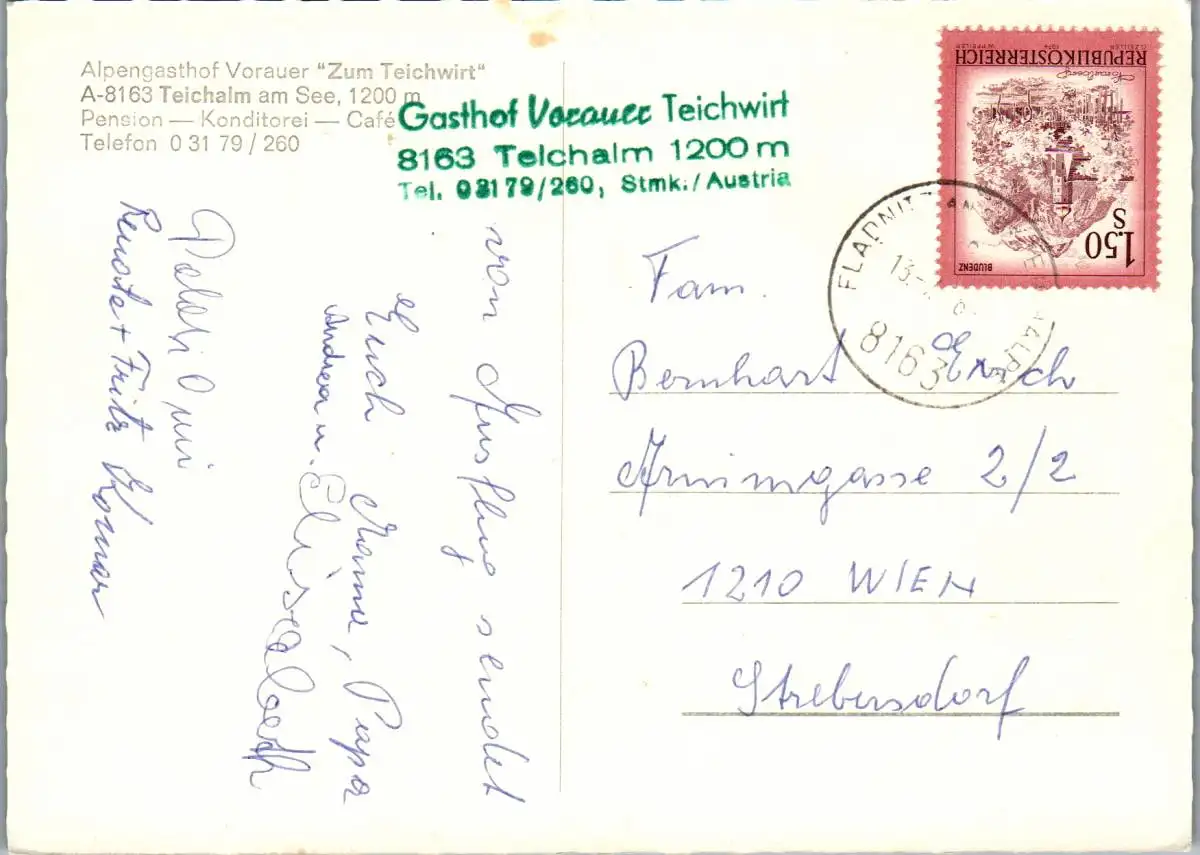 Alpengasthof Vorauer "Zum Teichwirt"
A-8163 Teichalm am See, 1200 m
Pension — Konditorei — Café
Telefon 0 31 79 / 260
Gasthof Vorauer Teichwirt
8163 Teichalm 1200 m
Tel. 03179/260, Stmk./Austria
von Ausflug sendet
Euch Mama, Papa
Andrea u. Elisabeth
Renate + Fritz
REPUBLIK ÖSTERREICH
1974
1.50
S
BLUDENZ
FLADNITZ
13.
8163
Fam.
Bernhart Erich
Arnimgasse 2/2
1210 WIEN
Strebersdorf